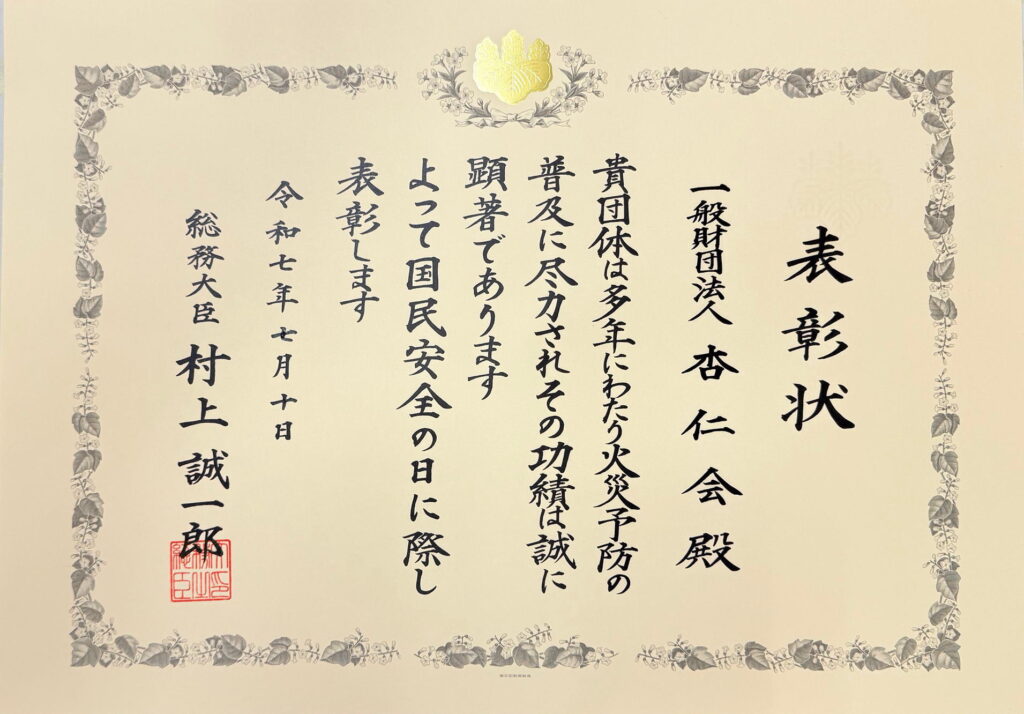 表彰状
一般財団法人 杏仁会殿
貴団体は多年にわたり火災予防の
普及に尽力されその功績は誠に
顕著であります
よって国民安全の日に際し
表彰します
令和七年七月十日
総務大臣 村上誠一郎